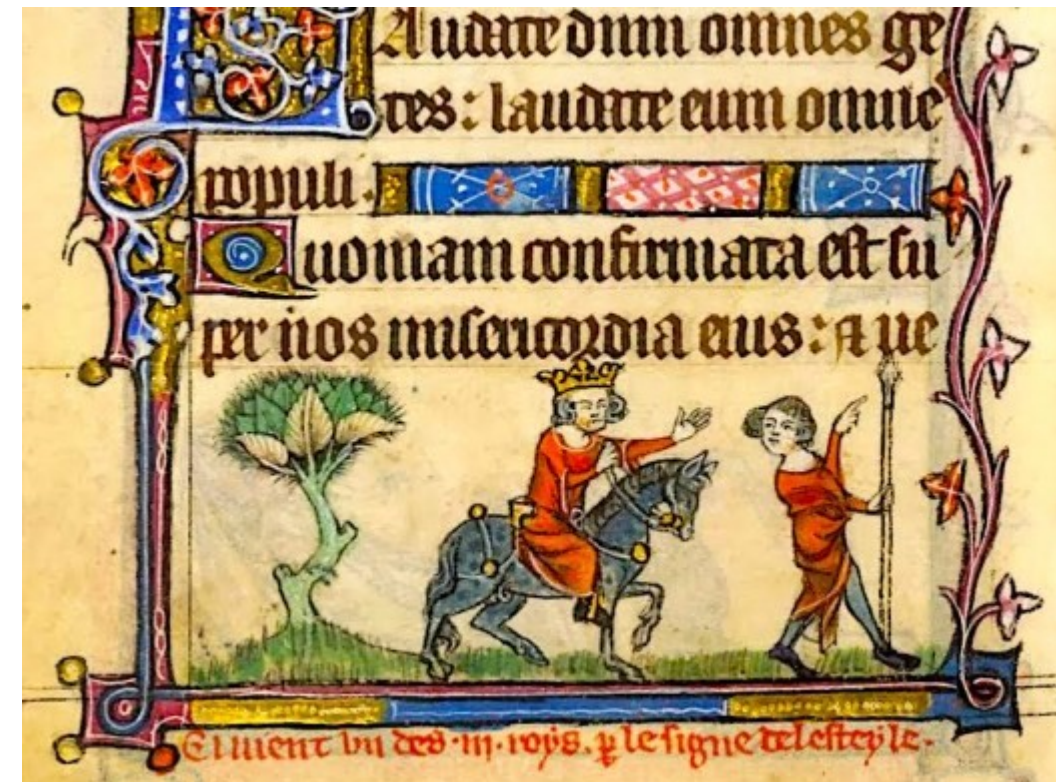 Laudate dnm omnes ge
tes: laudate eum omne
populi.
Quoniam confirmata est su
per nos misericordia eius: & ve
Ci vient un des .iii. roys. p le signe del esteyle.